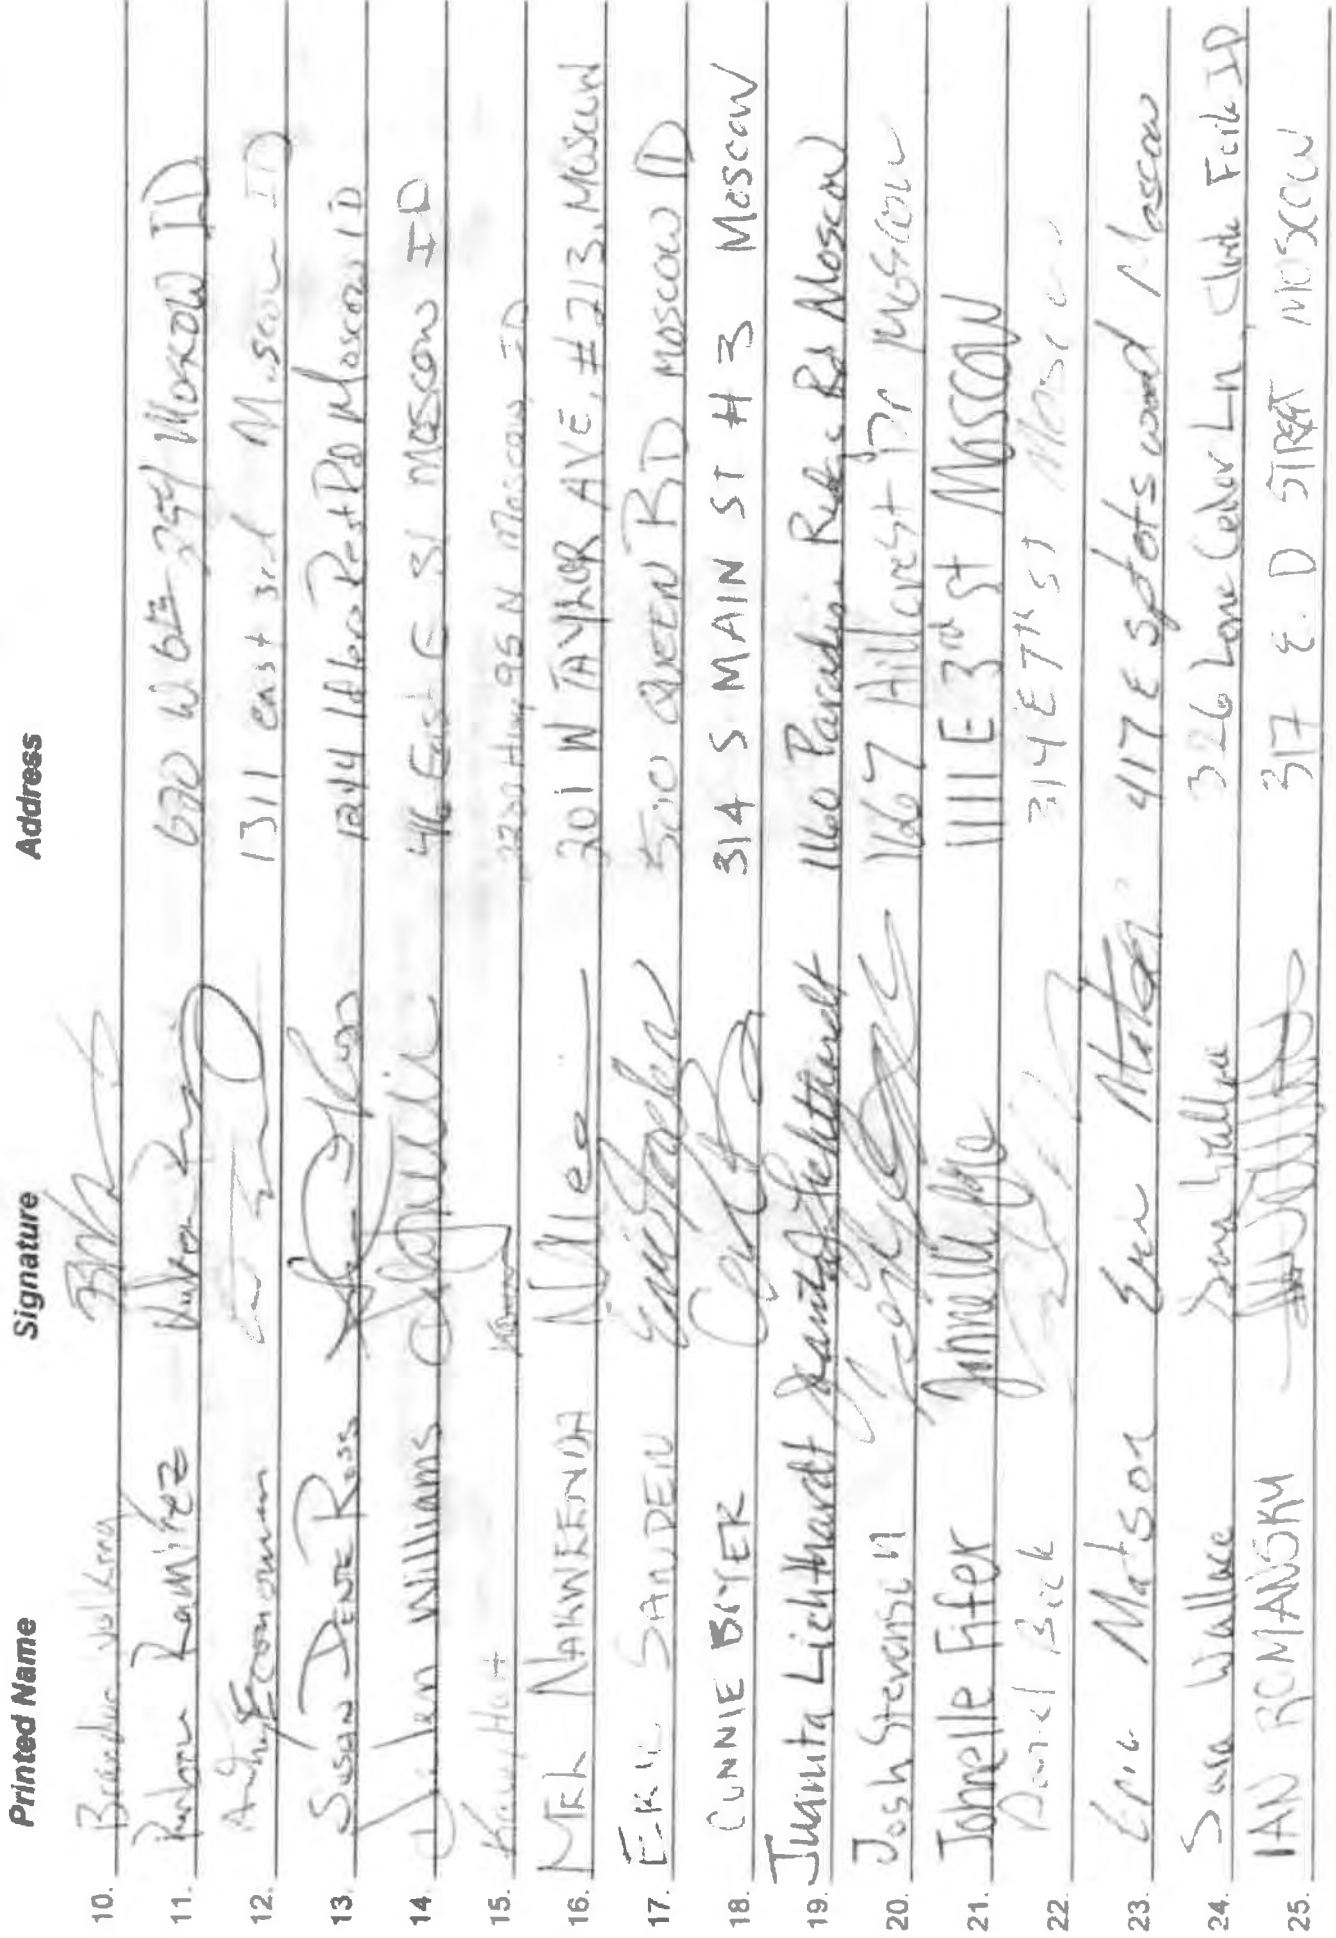 Printed Name Signature Address
10. Brandie
11. Ramirez 620 W 6th 254 Moscow ID
12. Economou 1311 east 3rd Moscow ID
13. SUSAN DENE ROSS 1244 Idlers Rest Rd Moscow ID
14. Jolen Williams Moscow ID
15. Hwy 95 N Moscow, ID
16. 201 W TAYLOR AVE, #213, Moscow
17. ERIC SANDEN Eric Sanden 510 QUEEN RD MOSCOW ID
18. CONNIE BOYER 314 S MAIN ST #3 Moscow
19. Juanita Lichthardt Juanita Lichthardt 1160 Paradise Ridge Rd Moscow
20. Josh Stevenson 1167 Hillcrest Dr Moscow
21. Johnelle Fifer Johnelle Fifer 1111 E 3rd st Moscow
22. Daniel 314 E 7th st Moscow
23. Eric Matson 417 E spotswood Moscow
24. Sara Wallace Sara Wallace 326 Lone Cedar Ln, Clark Fork ID
25. IAN ROMANSKY 317 E. D STREET MOSCOW